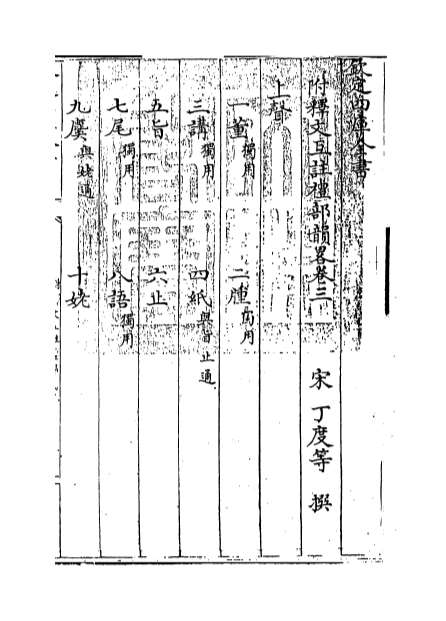 欽定四庫全書
附釋文互註禮部韻畧卷三
宋 丁度等 撰
上聲
一董獨用 二腫獨用
三講獨用 四紙與旨止通
五旨 六止
七尾獨用 八語獨用
九麌與姥通 十姥